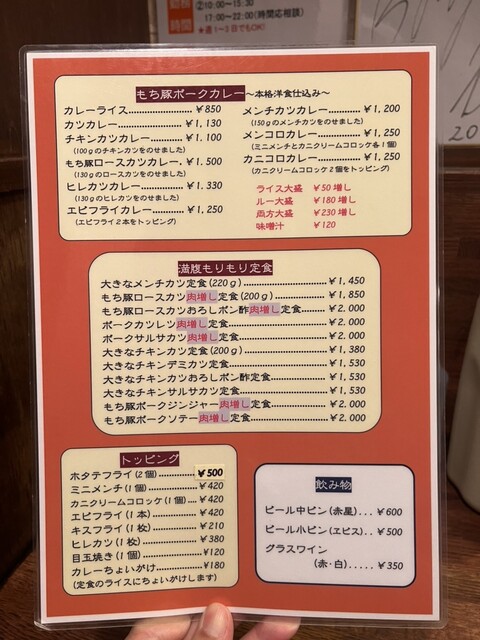 ②10:00〜15:30
17:00〜22:00(時間応相談)
★週1〜3日でもOK!
もち豚ポークカレー〜本格洋食仕込み〜
カレーライス……………… ¥850
カツカレー……………… ¥1,130
チキンカツカレー……… ¥1,100
(100gのチキンカツをのせました)
もち豚ロースカツカレー. ¥1,500
(130gのロースカツをのせました)
ヒレカツカレー………… ¥1,330
(130gのヒレカツをのせました)
エビフライカレー……… ¥1,250
(エビフライ2本をトッピング)
メンチカツカレー………… ¥1,200
(150gのメンチカツをのせました)
メンコロカレー…………… ¥1,250
(ミニメンチとカニクリームコロッケ各1個)
カニコロカレー…………… ¥1,250
(カニクリームコロッケ2個をトッピング)
ライス大盛 ¥50増し
ルー大盛 ¥180増し
両方大盛 ¥230増し
味噌汁 ¥120
満腹もりもり定食
大きなメンチカツ定食(220g)……………… ¥1,450
もち豚ロースカツ肉増し定食(200g)……… ¥1,850
もち豚ロースカツおろしポン酢肉増し定食…… ¥2,000
ポークカツレツ肉増し定食…………………… ¥2,000
ポークサルサカツ肉増し定食………………… ¥2,000
大きなチキンカツ定食(200g)……………… ¥1,380
大きなチキンデミカツ定食…………………… ¥1,530
大きなチキンカツおろしポン酢定食………… ¥1,530
大きなチキンサルサカツ定食………………… ¥1,530
もち豚ポークジンジャー肉増し定食………… ¥2,000
もち豚ポークソテー肉増し定食……………… ¥2,000
トッピング
ホタテフライ(2個)………… ¥500
ミニメンチ(1個)…………… ¥420
カニクリームコロッケ(1個)… ¥420
エビフライ(1本)…………… ¥420
キスフライ(1枚)…………… ¥210
ヒレカツ(1枚)……………… ¥380
目玉焼き(1個)……………… ¥120
カレーちょいがけ…………… ¥180
(定食のライスにちょいがけします)
飲み物
ビール中ビン(赤星)... ¥600
ビール小ビン(ヱビス).. ¥500
グラスワイン
(赤・白)..... ¥350
20